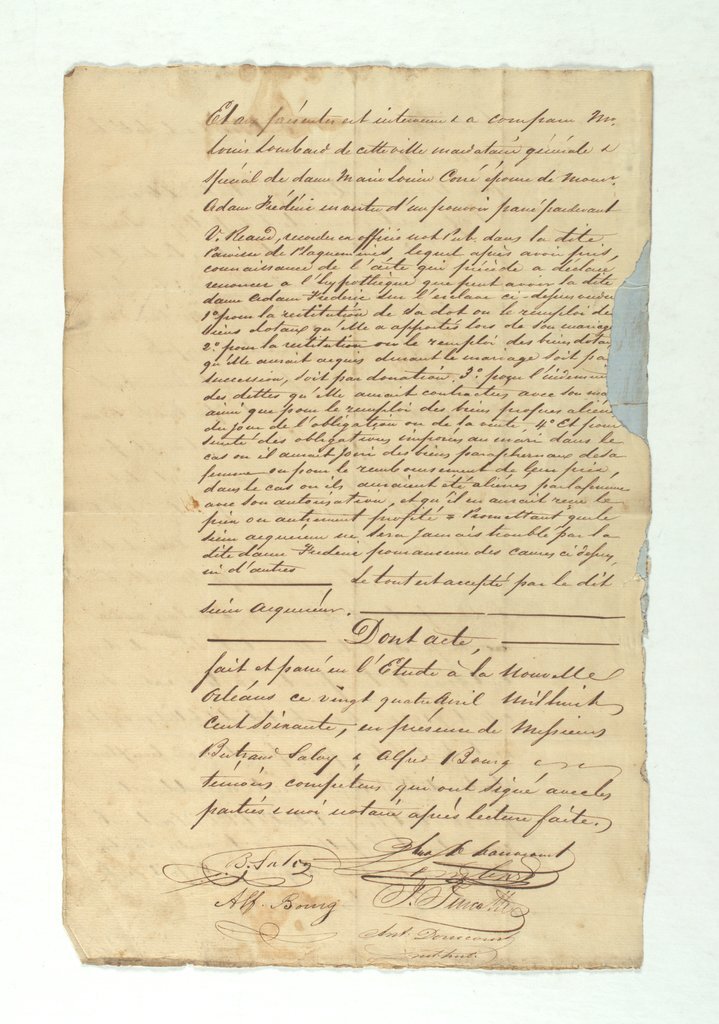 Et aux présentes est intervenu & a comparu Mr.
Louis Lombard de cette ville mandataire générale &
spécial de dame Marie Louise Corré épouse de Monsr.
Adam Frédéric en vertu d'un pouvoir passé pardevant
V. Reaud, recorder ex officio not Pub. dans la dite
Paroisse de Plaquemines, lequel après avoir pris,
connaissance de l'acte qui précède a déclaré
renoncer à l'hypothèque que peut avoir la dite
dame Adam Frederic sur l'esclave ci-dessus
1º pour la restitution de sa dot ou le remploi de
biens dotaux qu'elle a apportés lors de son mariage
2º pour la restitution ou le remploi des biens dotau
qu'elle aurait acquis durant le mariage soit par
succession, soit par donation. 3º pour l'indemni
des dettes qu'elle aurait contractées avec son ma
ainsi que pour le remploi des biens propres aliénés
du jour de l'obligation ou de la vente, 4º Et pour
sureté des obligations imposées au mari dans le
cas où il aurait joui des biens paraphernaux de sa
femme ou pour le remboursement de leur prix,
dans le cas où ils auraient été aliénés par la femme
avec son autorisation, et qu'il en aurait reçu le
prix ou autrement profité = Promettant que le
sieur acquéreur ne sera jamais troublé par la
dite dame Frederic pour aucune des causes ci dessus,
ni d'autres Le tout est accepté par le dit
sieur acquéreur.
Dont acte,
fait et passé en l'Etude à la Nouvelle
Orléans ce vingt quatre Avril Mil huit
cent soixante, en présence de Messieurs
Bertrand Saloy & Alfred Bourg
témoins compétens qui ont signé avec les
parties & moi notaire après lecture faite.
B. Saloy
Alf. Bourg
Ant. Doriocourt
not. pub.